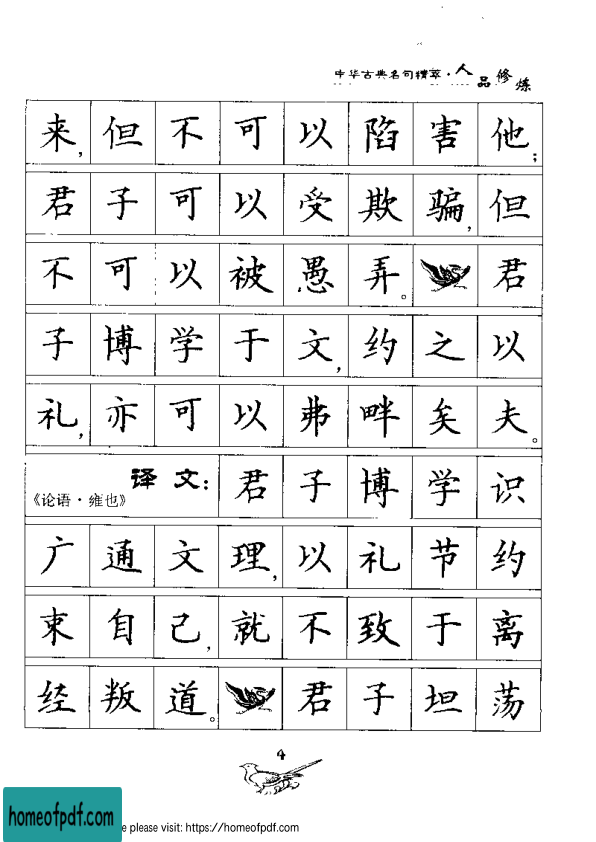 中华古典名句精萃·人品修炼
来,但不可以陷害他;
君子可以受欺骗,但
不可以被愚弄。君
子博学于文,约之以
礼,亦可以弗畔矣夫。
《论语·雍也》译文:君子博学识
广通文理,以礼节约
束自己,就不致于离
经叛道。君子坦荡
4
homeofpdf.com
e please visit: https://homeofpdf.com